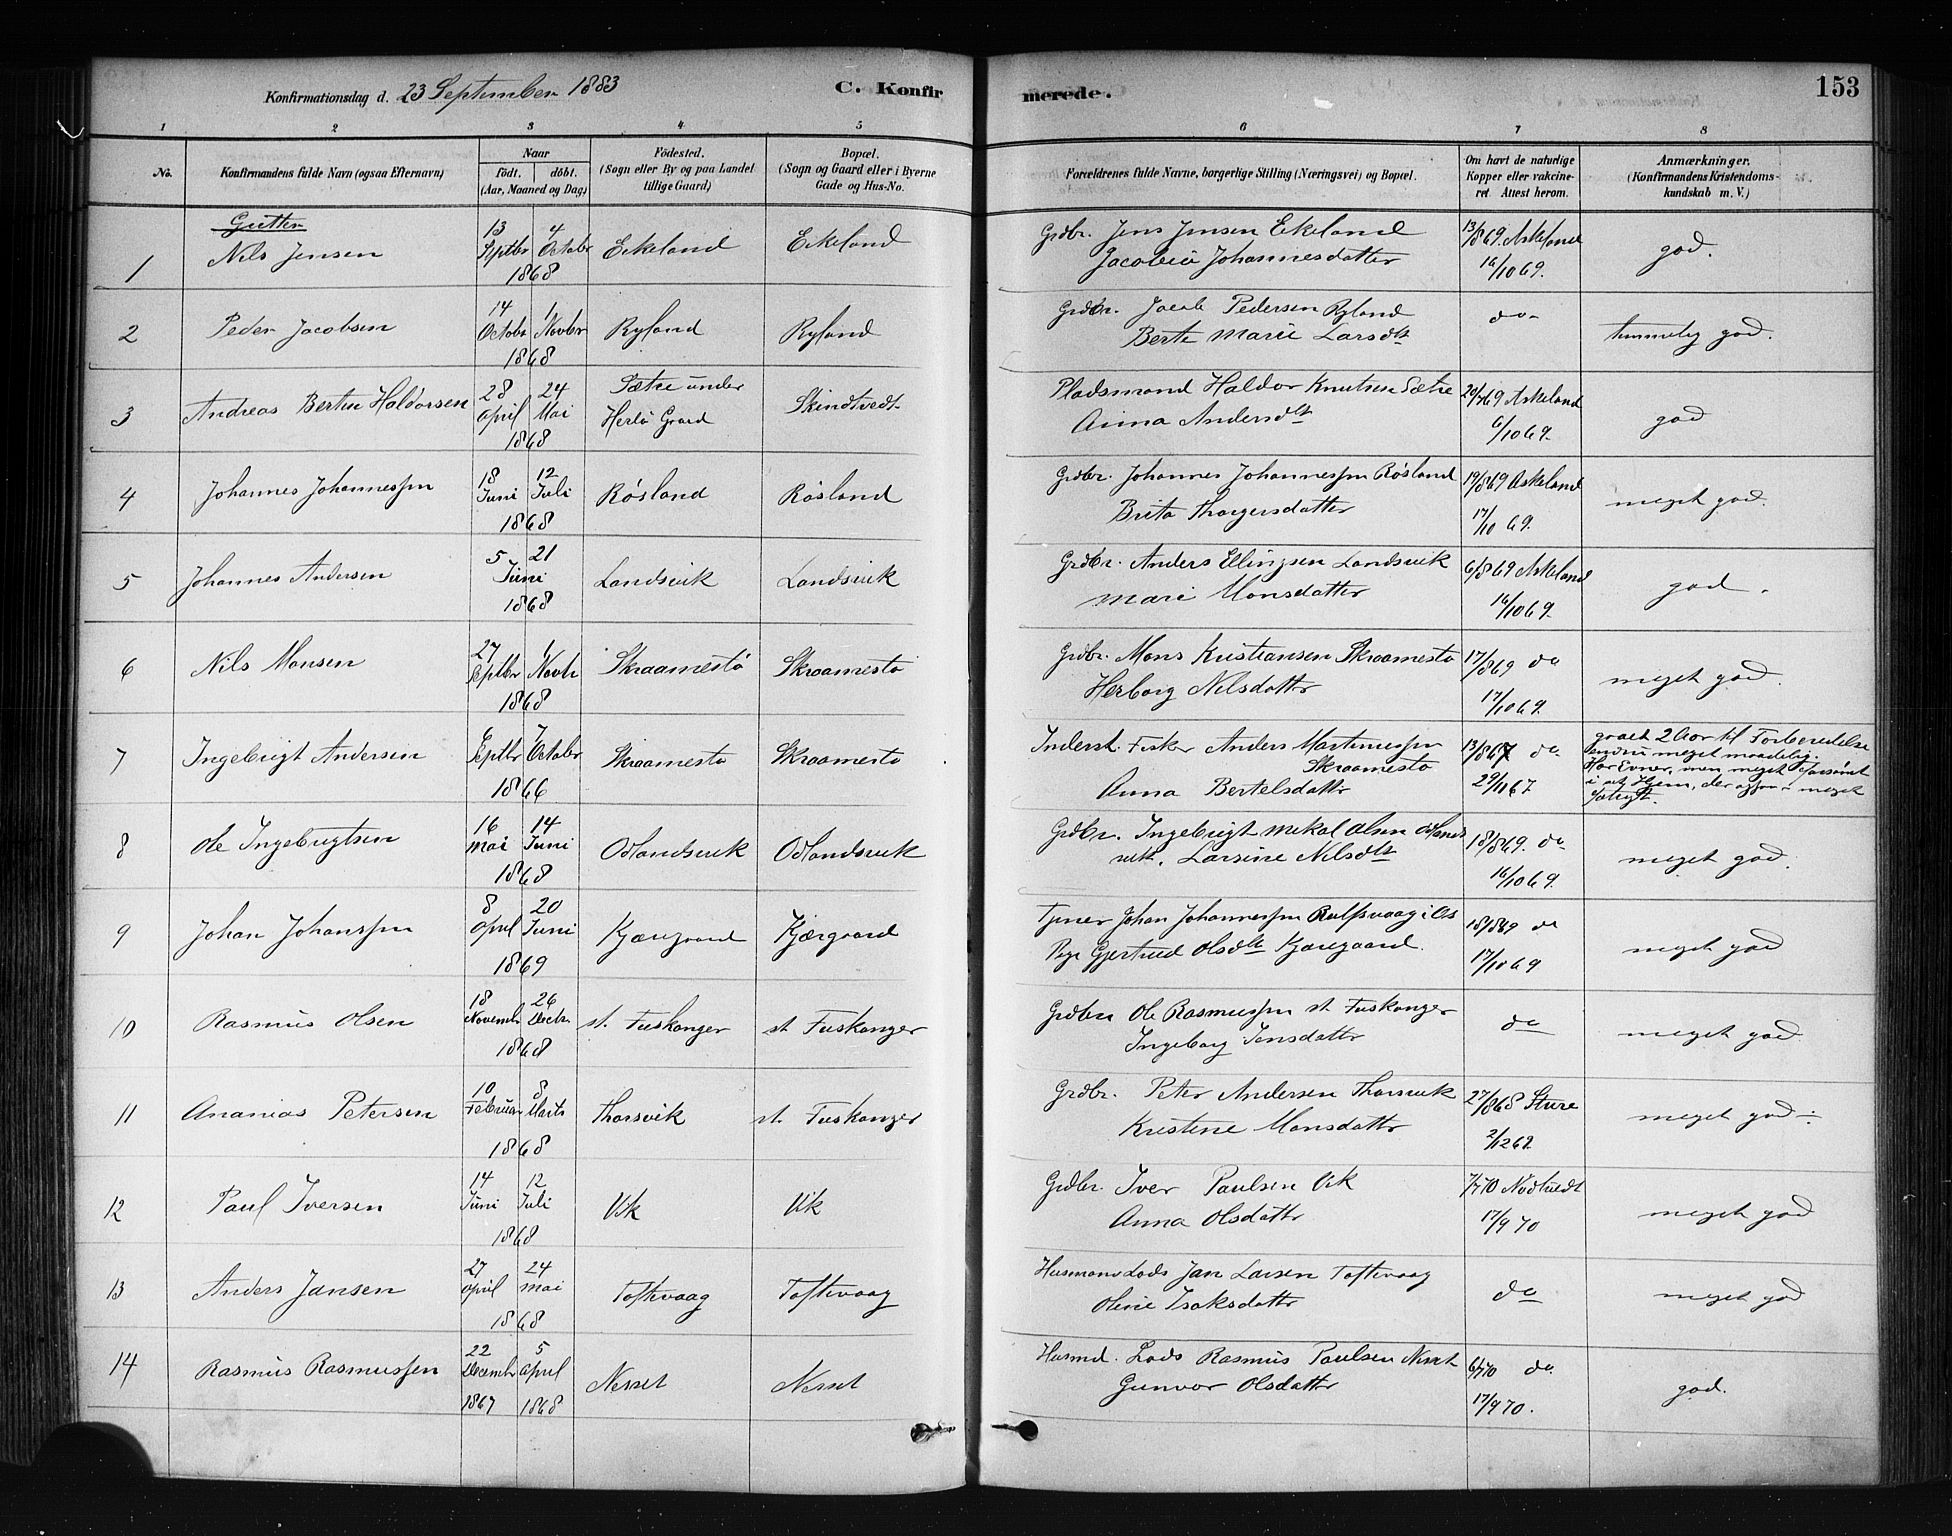 Konfirmationsdag d. 23 September 1883
C. Konfirmerede.
153
1 2 3 4 5 6 7 8
No.
Konfirmandens fulde Navn (ogsaa Efternavn)
Naar
født. døbt.
(Aar, Maaned og Dag)
Fødested.
(Sogn eller By og paa Landet
tillige Gaard)
Bopæl.
(Sogn og Gaard eller i Byerne
Gade og Hus-No.
Forældrenes fulde Navne, borgerlige Stilling (Næringsvei) og Bopæl.
Om havt de naturlige
Kopper eller vakcine-
ret Attest herom.
Anmærkninger.
(Konfirmandens Kristendoms-
kundskab m. V.)
Gutter
1 Nils Jensen 13 Septbr 4 Octobr 1868 Eikeland Eikeland
Grdbr. Jens Jensen Eikeland 13/8 69 Askeland
Jacobia Johannesdatter 16/10 69. god.
2 Peder Jacobsen 14 Octobr 1 Novbr 1868 Ryland Ryland
Grdbr. Jacob Pedersen Ryland do
Berte Marie Larsdt temmelig god.
3 Andreas Bertin Haldorsen 28 April 24 Mai 1868 Sætre under Herlø Gaard Skindtvedt
Pladsmand Haldor Knutsen Sætre 20/7 69 Askeland
Anna Andersdt 6/10 69. god
4 Johannes Johannessen 18 Juni 12 Juli 1868 Røsland Røsland
Grdbr. Johannes Johannessen Røsland 19/8 69 Askeland
Brita Thorgersdatter 17/10 69. meget god.
5 Johannes Andersen 5 21 Juni 1868 Landsvik Landsvik
Grdbr. Anders Ellingsen Landsvik 6/8 69 Askeland
Mari Monsdatter 16/10 69. god.
6 Nils Monsen 27 Septbr 1 Novbr 1868 Skraamestø Skraamestø
Grdbr. Mons Kristiansen Skraamestø 17/8 69 do
Herborg Nilsdattr 17/10 69. meget god.
7 Ingebrigt Andersen Septbr 7 Octobr 1866 Skraamestø Skraamestø
Inderst. Fisker Anders Martinussen 13/8 67 do
Skraamestø
Anna Bertelsdattr 29/11 67
gaaet 2 Aar til Forberedelse
endnu meget maadelig.
Har Evner, men meget forsømt
i et Hjem, der ogsaa i meget
8 Ole Ingebrigtsen 16 Mai 14 Juni 1868 Odlandsvik Odlandsvik
Grdbr. Ingebrigt Mikal Olsen Odlands 18/8 69. do
vik. Larsine Nilsdt 16/10 69. meget god.
9 Johan Johanssen 8 April 20 Juni 1869 Kjærgaard Kjærgaard
Tjener Johan Johannessen Rulfsvaag i Os 18/8 69 do
Pige Gjertrud Olsdt Kjærgaard. 17/10 69 meget god
10 Rasmus Olsen 18 Novembr 26 Decbr. 1868 st. Fuskanger st Fuskanger
Grdbr Ole Rasmussen st Fuskanger do
Ingeborg Jensdattr meget god
11 Ananias Petersen 10 Februar 8 Marts 1868 Thorsvik st. Fuskanger
Grdbr. Peter Andersen Thorsvik 27/8 68 Sture
Kristine Monsdattr 2/12 68. meget god
12 Paul Iversen 14 Juni 12 Juli 1868 Vik Vik
Grdbr. Iver Paulsen Vik 7/7 70 Nødtvedt
Anna Olsdattr 17/9 70 meget god
13 Anders Jansen 27 April 24 Mai 1868 Toftevaag Toftevaag
Husmand Lods Jan Larsen Toftevaag do
Oline Isaksdattr meget god
14 Rasmus Rasmussen 22 Decembr 1867 5 April 1868 Nesset Nesset
Husmd. Lods Rasmus Paulsen Nesset 6/7 70 do
Gunvor Olsdattr 17/9 70. god.